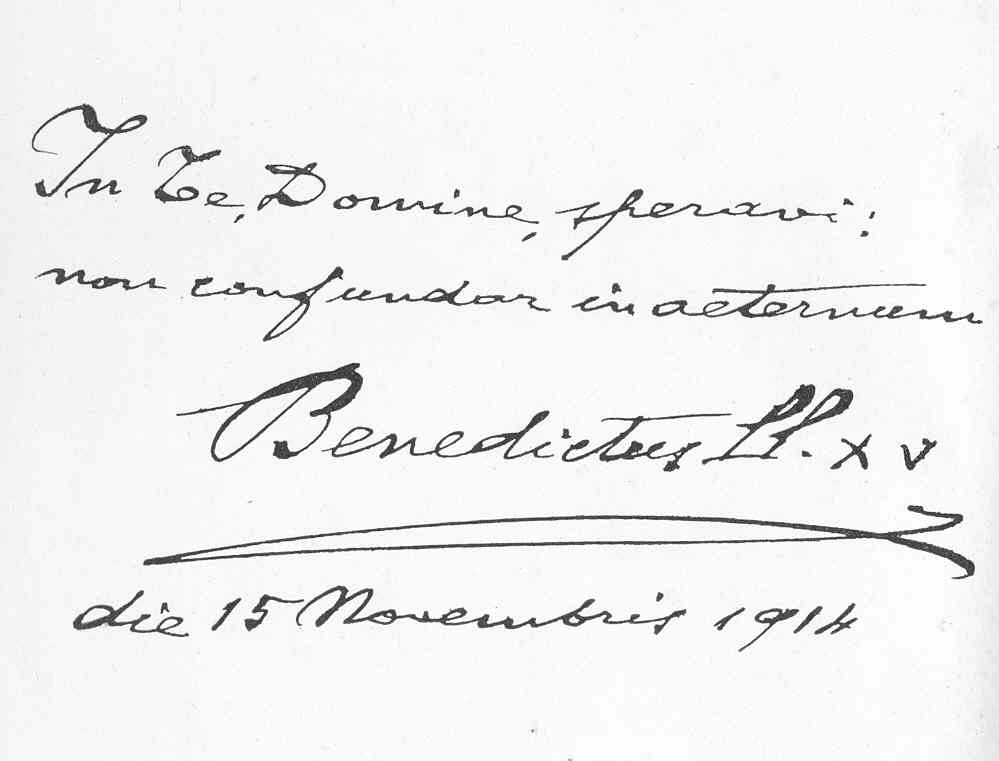 In Te, Domine, speravi:
non confundar in aeternum
Benedictus PP. XV
die 15 Novembris 1914